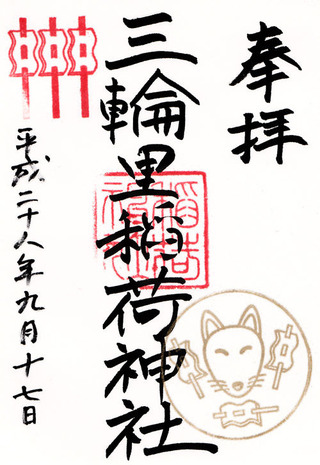 奉拝
三輪里稲荷神社
平成二十八年九月十七日